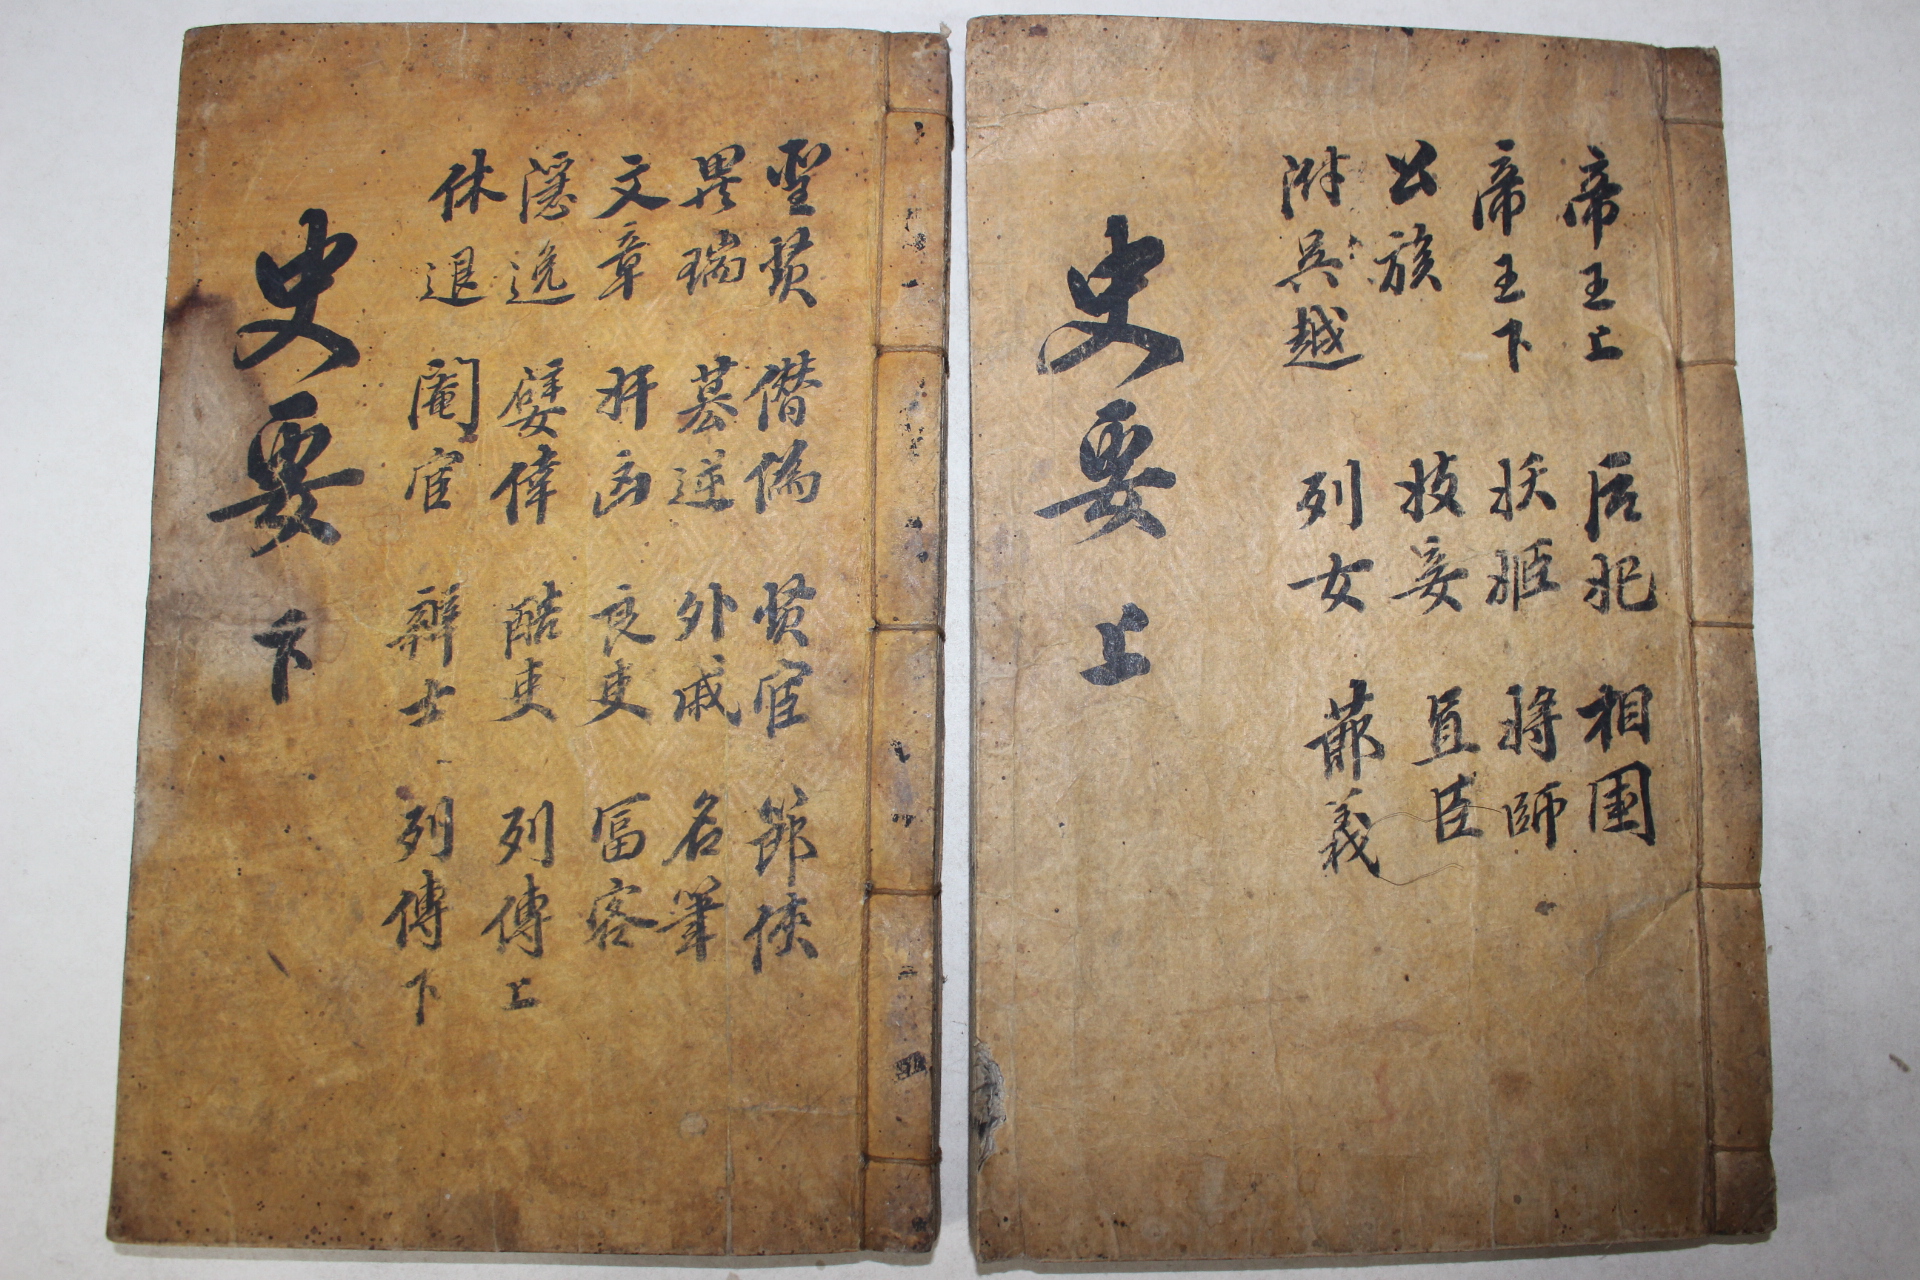 帝王上 后妃 相國
帝王下 妖姬 將師
公族 妓妾 直臣
附吳越 列女 節義
史要 上
聖賢 僭偽 賢宦 節俠
異瑞 逆 外戚 名筆
文章 奸凶 良吏 冨客
隱逸 嬖倖 酷吏 列傳上
休退 閹宦 辯士 列傳下
史要 下